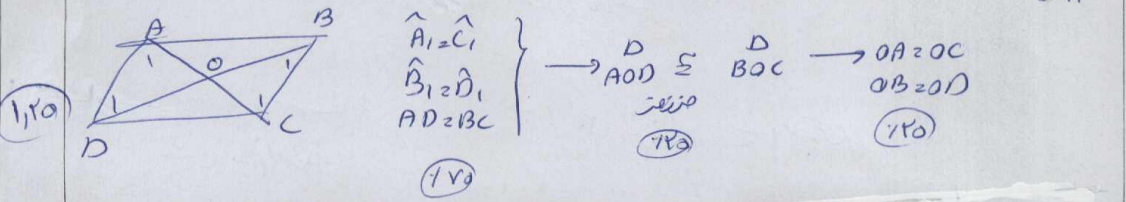 A B
O
1 1
1 1
D C
۱٫۲۵
Â₁=Ĉ₁
B̂₁=D̂₁
AD=BC
۰٫۷۵
→ △AOD ≅ △BOC
ض‌ز‌ض‌ز
۰٫۲۵
→ OA=OC
OB=OD
۰٫۲۵